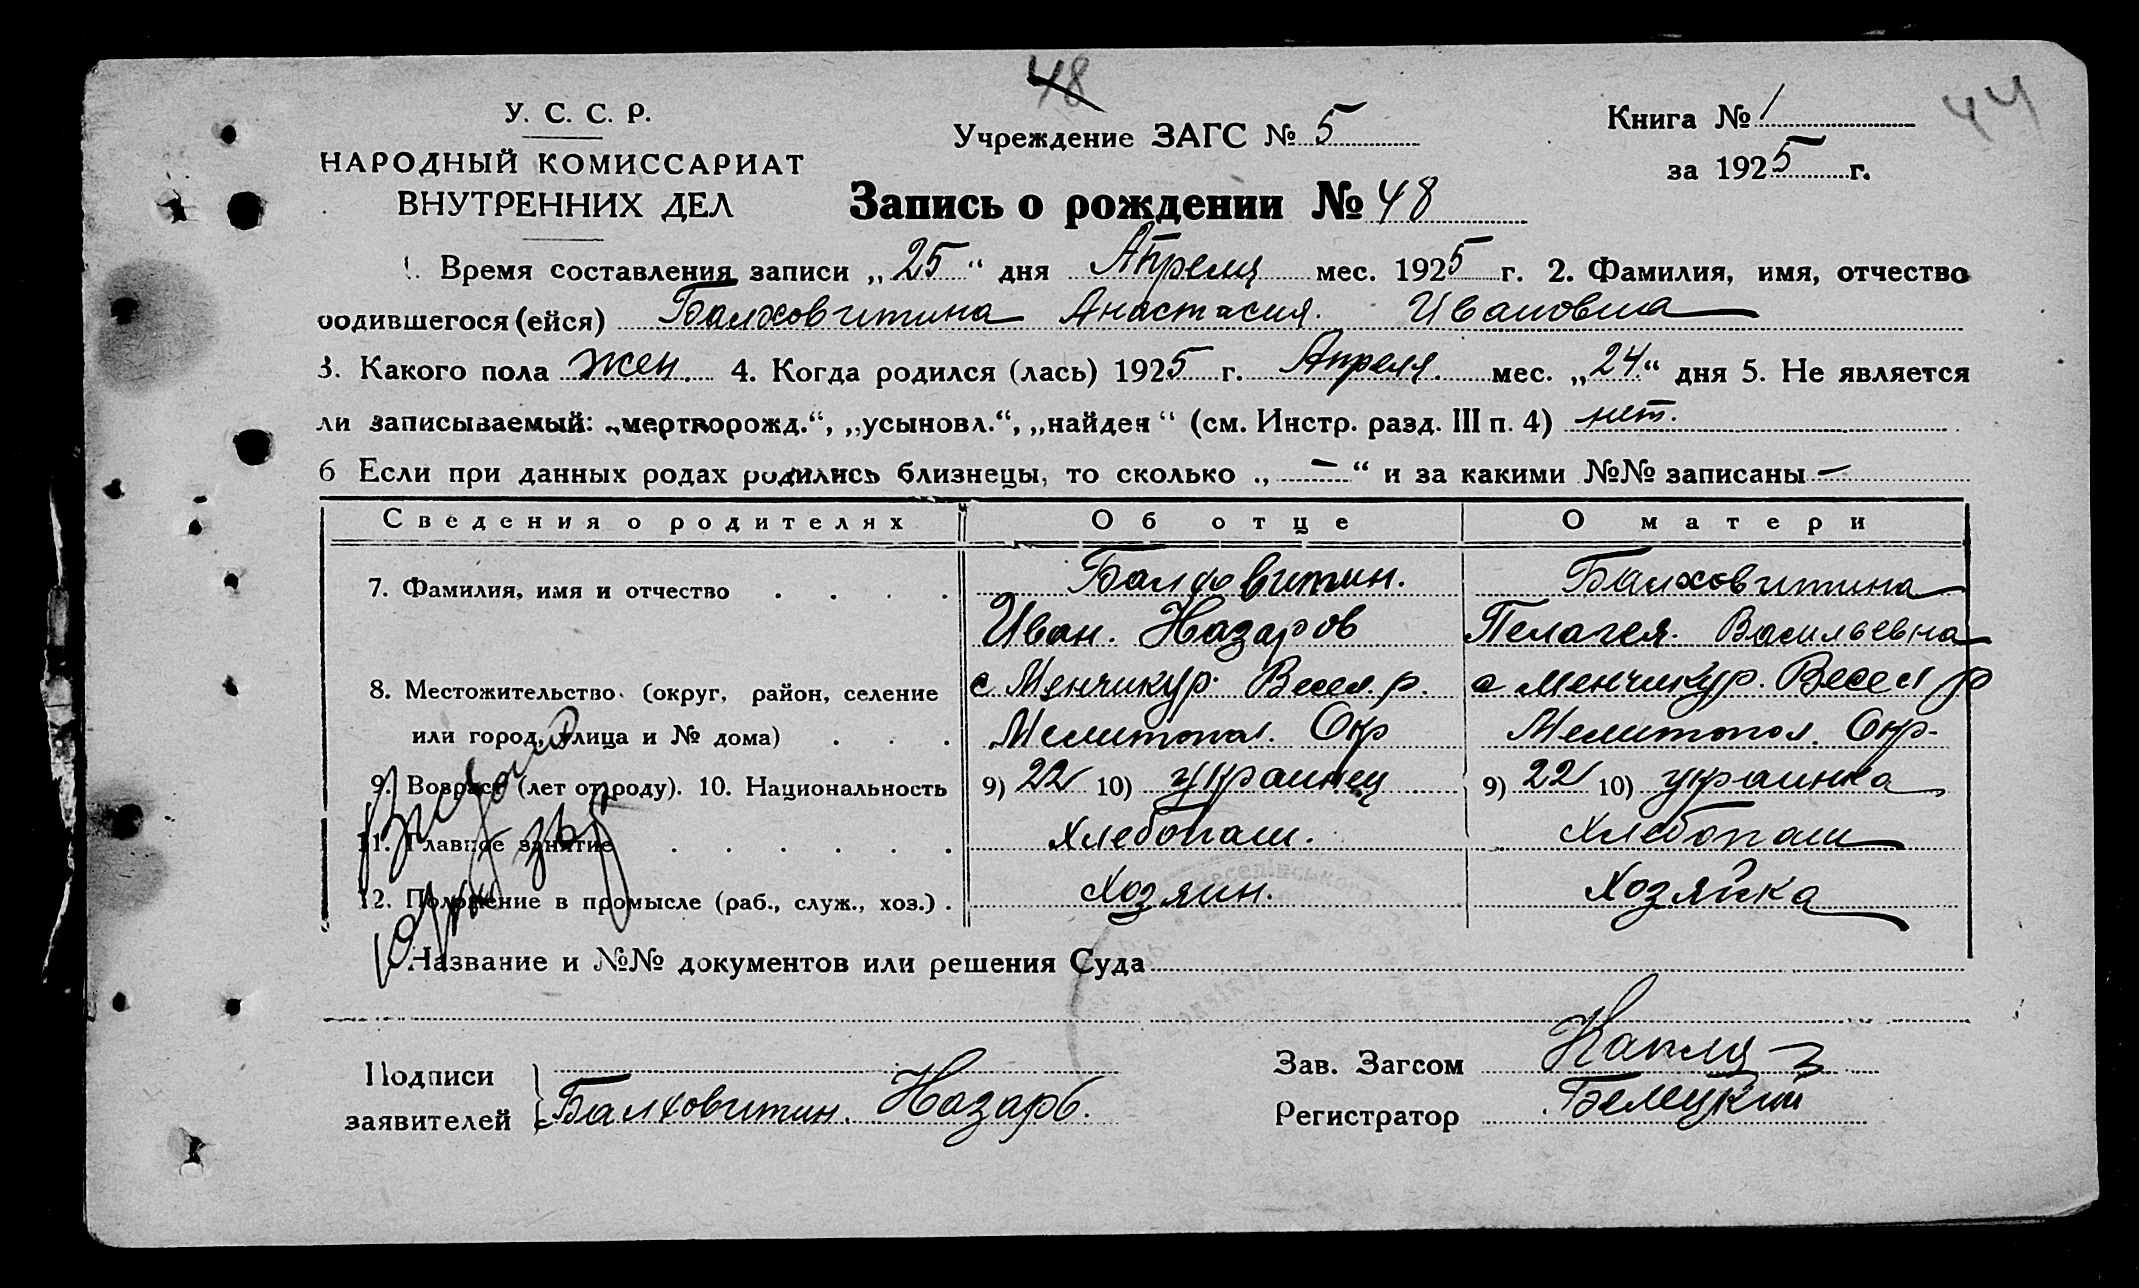 48
44
У. С. С. Р.
НАРОДНЫЙ КОМИССАРИАТ
ВНУТРЕННИХ ДЕЛ
Учреждение ЗАГС № 5
Книга № 1
за 1925 г.
Запись о рождении № 48
1. Время составления записи „25“ дня Апреля мес. 1925 г. 2. Фамилия, имя, отчество
родившегося (ейся) Балховитина Анастасия. Ивановна
3. Какого пола жен. 4. Когда родился (лась) 1925 г. Апреля. мес. „24“ дня 5. Не является
ли записываемый: „мертворожд.“, „усыновл.“, „найден“ (см. Инстр. разд. III п. 4) нет.
6 Если при данных родах родились близнецы, то сколько „—“ и за какими №№ записаны —
Сведения о родителях Об отце О матери
7. Фамилия, имя и отчество . . . . Балховитин. Балховитина
Иван. Назаров Пелагея. Васильевна
8. Местожительство (округ, район, селение с Менчикур. Весел. р. с Менчикур. Весел р
или город, улица и № дома) . . . Мелитопол. Окр Мелитопол. Окр.
9. Возраст (лет от роду). 10. Национальность 9) 22 10) украинец 9) 22 10) украинка
11. Главное занятие . . . . . . Хлебопаш. Хлебопаш
12. Положение в промысле (раб., служ., хоз.) . Хозяин. Хозяйка
Название и №№ документов или решения Суда
Подписи
заявителей Балховитин. Назаръ.
Зав. Загсом
Регистратор Белецкий